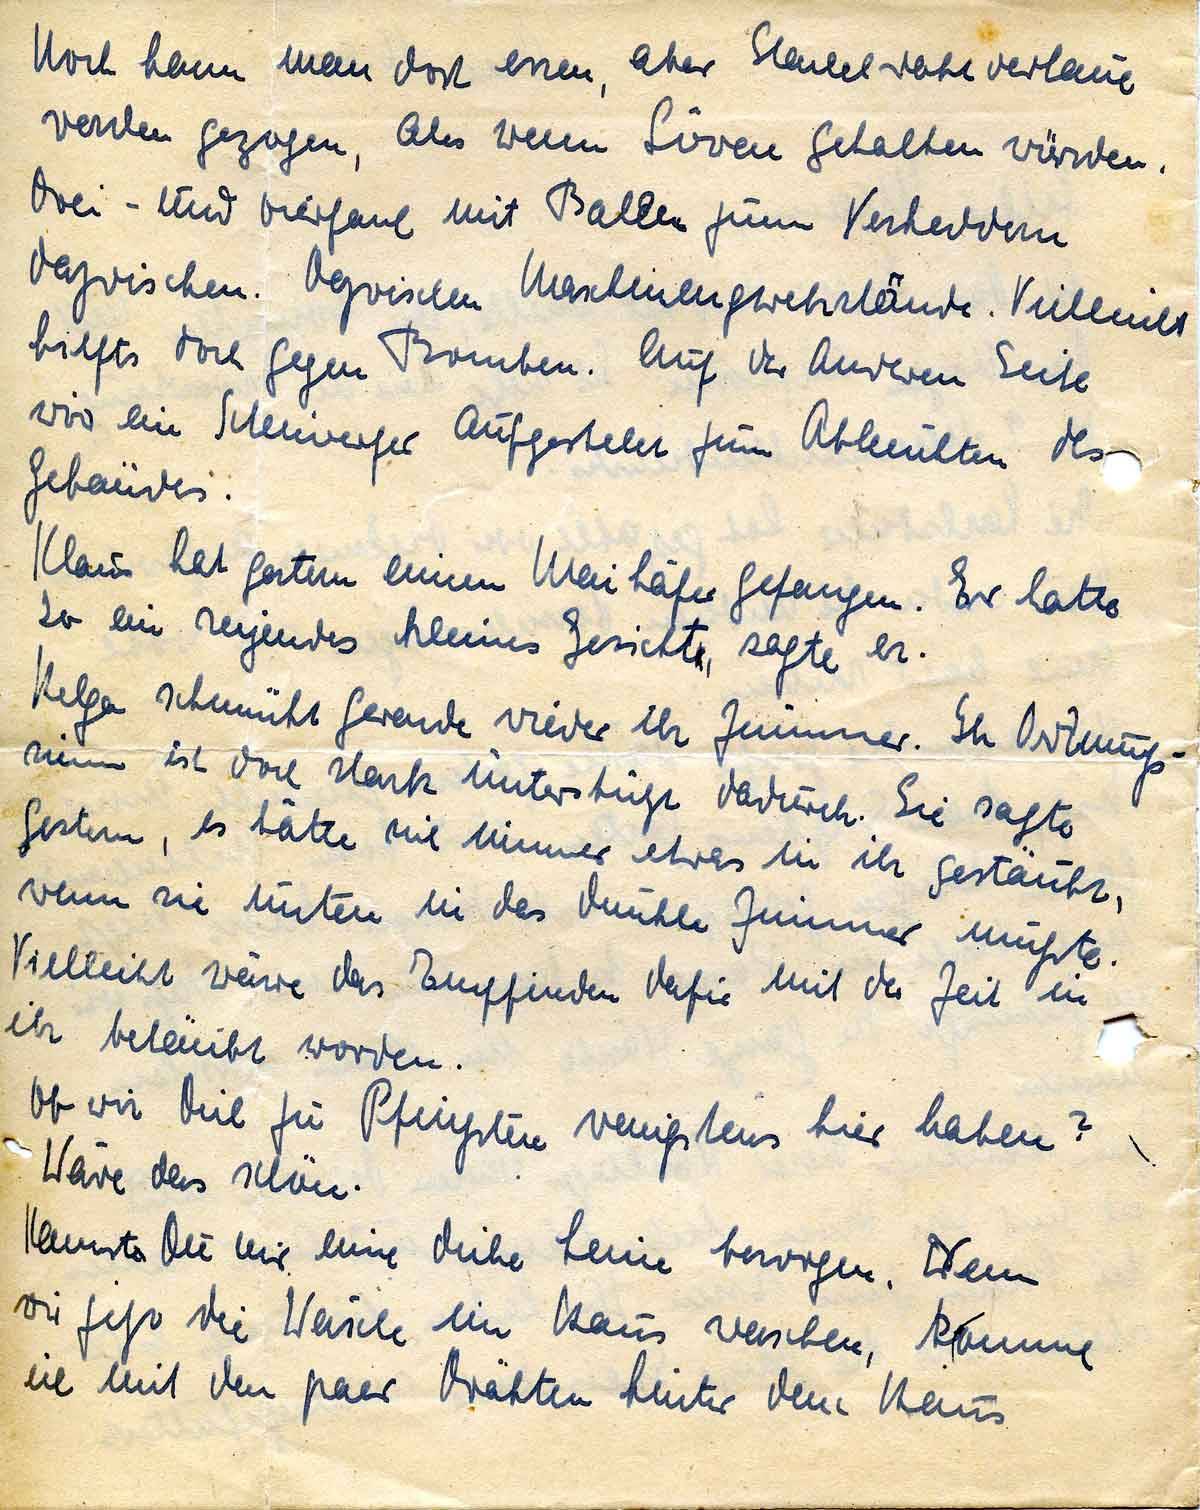 Noch kann man dort essen, aber Stacheldrahtverhaue
werden gezogen, als wenn Löwen gehalten würden.
Drei- und vierfach mit Ballen zum Verheddern
dazwischen. Dazwischen Maschinengewehrstände. Vielleicht
hilfts doch gegen Bomben. Auf der anderen Seite
wird ein Scheinwerfer aufgestellt zum Ableuchten des
Gebäudes.
Klaus hat gestern einen Maikäfer gefangen. Er hatte
so ein reizendes kleines Gesicht, sagte er.
Helga schmückt gerade wieder ihr Zimmer. Ihr Ordnungs-
sinn ist doch stark unterstützt dadurch. Sie sagte
gestern, es hätte sich immer etwas in ihr gesträubt,
wenn sie unten in das dunkle Zimmer mußte.
Vielleicht wäre das Empfinden dafür mit der Zeit in
ihr betäubt worden.
Ob wir Dich zu Pfingsten wenigstens hier haben?
Wäre das schön.
Kannst Du mir eine dicke Leine besorgen. Wenn
wir jetzt die Wäsche im Haus waschen, komme
ich mit den paar Drähten hinter dem Haus